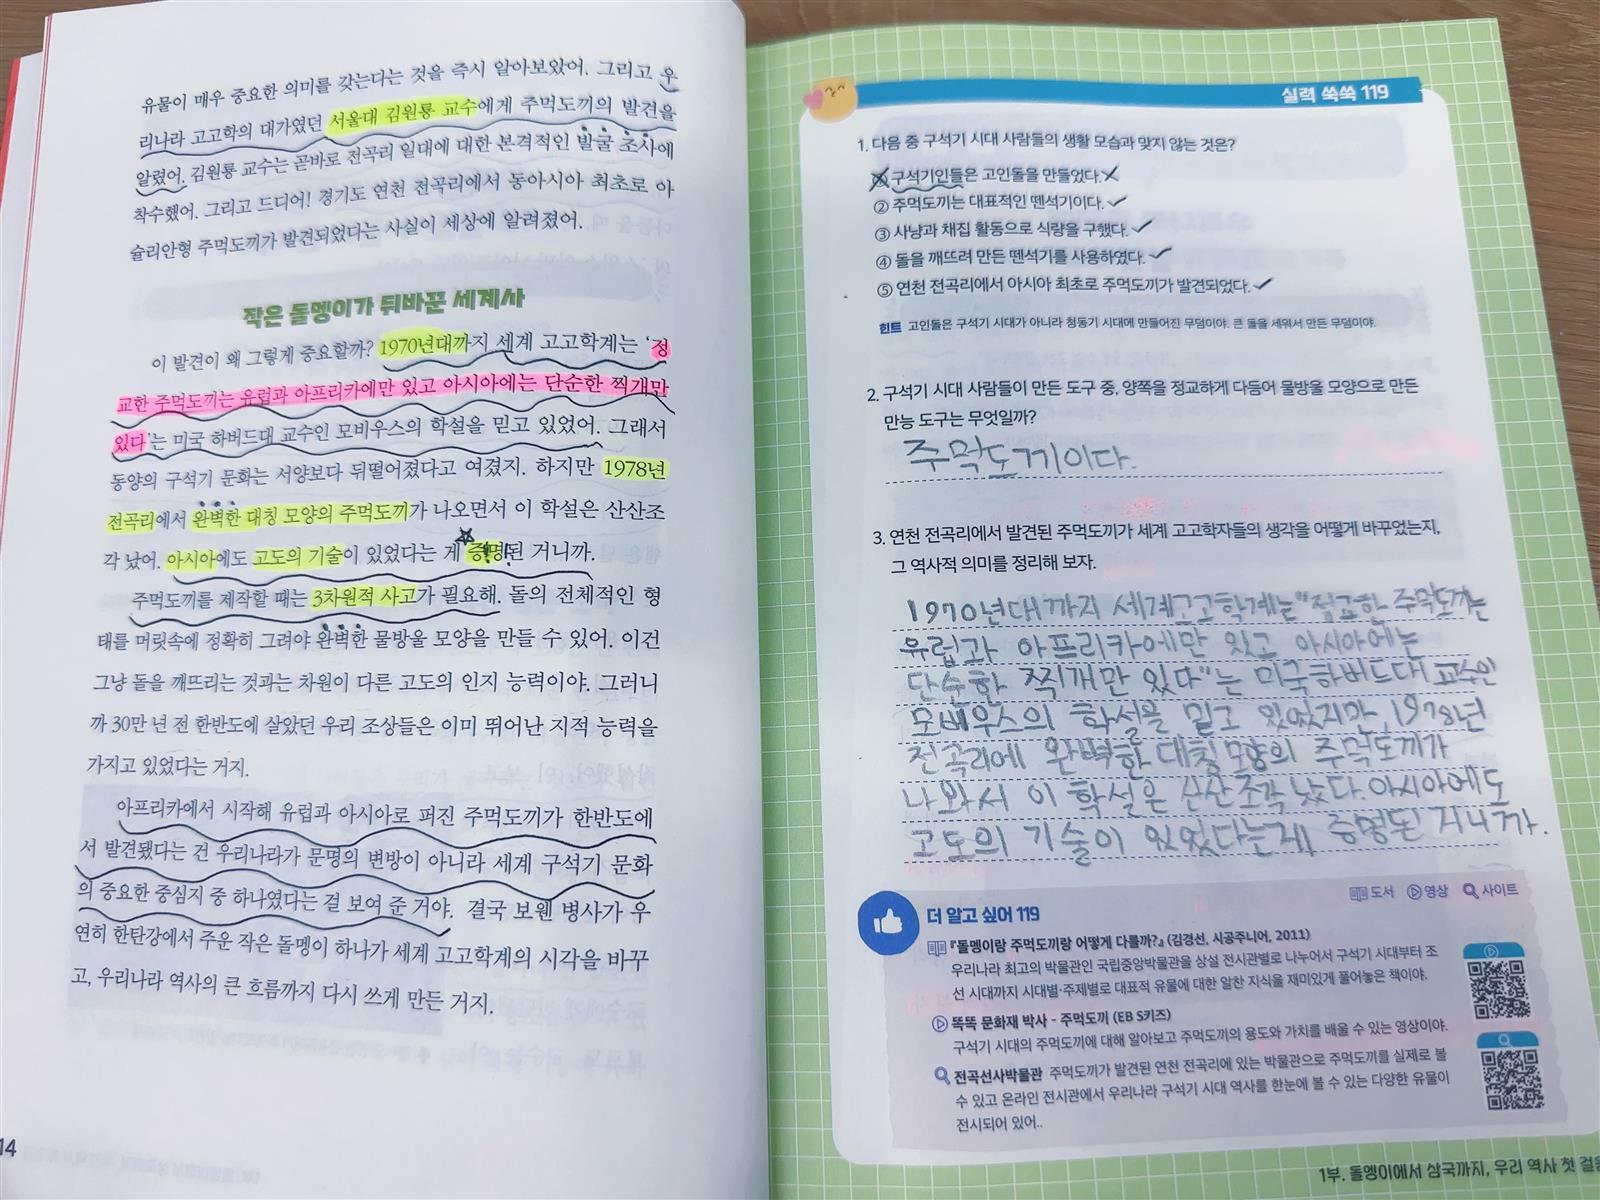 유물이 매우 중요한 의미를 갖는다는 것을 즉시 알아보았어. 그리고 우
리나라 고고학의 대가였던 서울대 김원룡 교수에게 주먹도끼의 발견을
알렸어. 김원룡 교수는 곧바로 전곡리 일대에 대한 본격적인 발굴 조사에
착수했어. 그리고 드디어! 경기도 연천 전곡리에서 동아시아 최초로 아
슐리안형 주먹도끼가 발견되었다는 사실이 세상에 알려졌어.
작은 돌멩이가 뒤바꾼 세계사
이 발견이 왜 그렇게 중요할까? 1970년대까지 세계 고고학계는 '정
교한 주먹도끼는 유럽과 아프리카에만 있고 아시아에는 단순한 찍개만
있다'는 미국 하버드대 교수인 모비우스의 학설을 믿고 있었어. 그래서
동양의 구석기 문화는 서양보다 뒤떨어졌다고 여겼지. 하지만 1978년
전곡리에서 완벽한 대칭 모양의 주먹도끼가 나오면서 이 학설은 산산조
각 났어. 아시아에도 고도의 기술이 있었다는 게 증명된 거니까.
주먹도끼를 제작할 때는 3차원적 사고가 필요해. 돌의 전체적인 형
태를 머릿속에 정확히 그려야 완벽한 물방울 모양을 만들 수 있어. 이건
그냥 돌을 깨뜨리는 것과는 차원이 다른 고도의 인지 능력이야. 그러니
까 30만 년 전 한반도에 살았던 우리 조상들은 이미 뛰어난 지적 능력을
가지고 있었다는 거지.
아프리카에서 시작해 유럽과 아시아로 퍼진 주먹도끼가 한반도에
서 발견됐다는 건 우리나라가 문명의 변방이 아니라 세계 구석기 문화
의 중요한 중심지 중 하나였다는 걸 보여 준 거야. 결국 보웬 병사가 우
연히 한탄강에서 주운 작은 돌멩이 하나가 세계 고고학계의 시각을 바꾸
고, 우리나라 역사의 큰 흐름까지 다시 쓰게 만든 거지.
14
실력 쑥쑥 119
1. 다음 중 구석기 시대 사람들의 생활 모습과 맞지 않는 것은?
① 구석기인들은 고인돌을 만들었다.
② 주먹도끼는 대표적인 뗀석기이다.
③ 사냥과 채집 활동으로 식량을 구했다.
④ 돌을 깨뜨려 만든 뗀석기를 사용하였다.
⑤ 연천 전곡리에서 아시아 최초로 주먹도끼가 발견되었다.
힌트 고인돌은 구석기 시대가 아니라 청동기 시대에 만들어진 무덤이야. 큰 돌을 세워서 만든 무덤이야.
2. 구석기 시대 사람들이 만든 도구 중, 양쪽을 정교하게 다듬어 물방울 모양으로 만든
만능 도구는 무엇일까?
주먹도끼이다.
3. 연천 전곡리에서 발견된 주먹도끼가 세계 고고학자들의 생각을 어떻게 바꾸었는지,
그 역사적 의미를 정리해 보자.
1970년대까지 세계고고학계는 "정교한 주먹도끼는
유럽과 아프리카에만 있고 아시아에는
단순한 찍개만 있다"는 미국하버드대 교수인
모베우스의 학설을 믿고 있었지만, 1978년
전곡리에 완벽한 대칭모양의 주먹도끼가
나와서 이 학설은 산산조각 났다. 아시아에도
고도의 기술이 있었다는게, 증명된 거니까.
도서 영상 사이트
더 알고 싶어 119
『돌멩이랑 주먹도끼랑 어떻게 다를까?』 (김경선, 시공주니어, 2011)
우리나라 최고의 박물관인 국립중앙박물관을 상설 전시관별로 나누어서 구석기 시대부터 조
선 시대까지 시대별·주제별로 대표적 유물에 대한 알찬 지식을 재미있게 풀어놓은 책이야.
똑똑 문화재 박사 - 주먹도끼 (EB S키즈)
구석기 시대의 주먹도끼에 대해 알아보고 주먹도끼의 용도와 가치를 배울 수 있는 영상이야.
전곡선사박물관 주먹도끼가 발견된 연천 전곡리에 있는 박물관으로 주먹도끼를 실제로 볼
수 있고 온라인 전시관에서 우리나라 구석기 시대 역사를 한눈에 볼 수 있는 다양한 유물이
전시되어 있어..
1부. 돌멩이에서 삼국까지, 우리 역사 첫 걸음